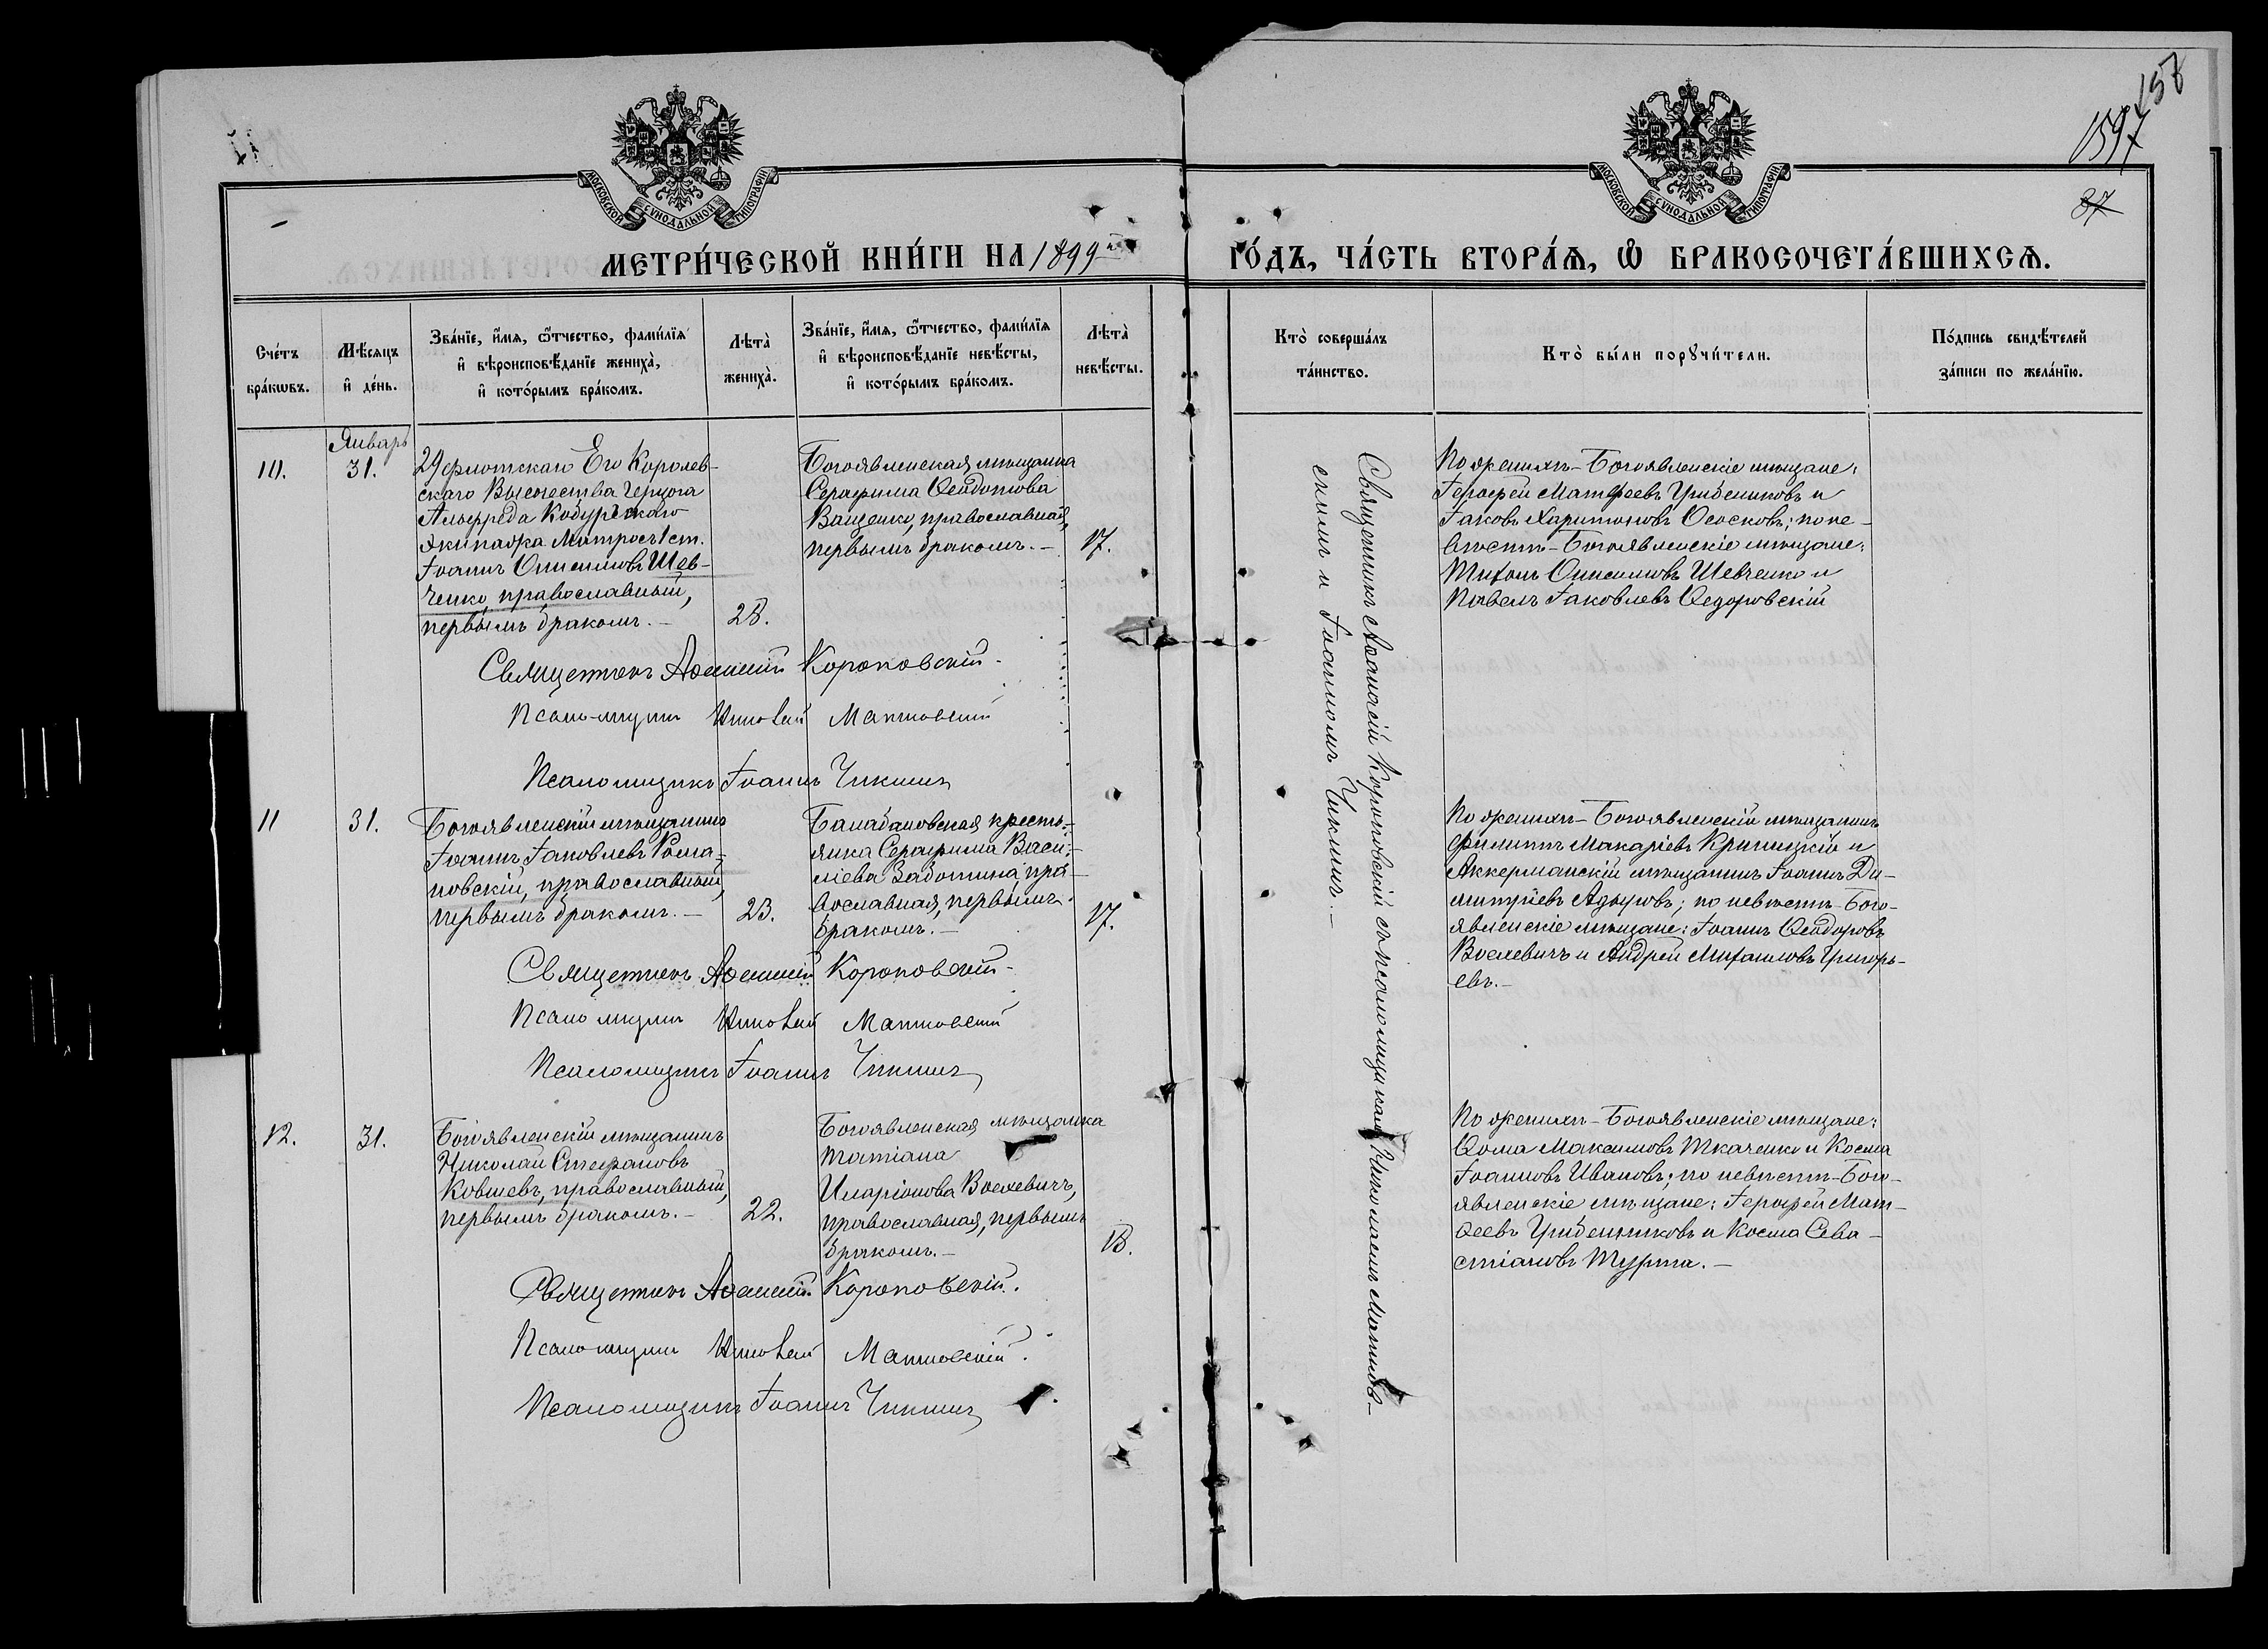 158
1597
37
МОСКОВСКОЙ СУНОДАЛЬНОЙ ТИПОГРАФІИ
МОСКОВСКОЙ СУНОДАЛЬНОЙ ТИПОГРАФІИ
МЕТРИ́ЧЕСКОЙ КНИ́ГИ НА 1899 й
ГО́ДЪ, ЧА́СТЬ ВТОРА́Ѧ, Ѽ БРАКОСОЧЕТА́ВШИХСѦ.
Сче́тъ бра́кѡвъ.
Мѣ́сяцъ и҆ де́нь.
Зва́нїе, и҆́мѧ, ѻ҆́тчество, фами́лїѧ и҆ вѣроисповѣ́данїе жениха̀, и҆ кото́рымъ бра́комъ.
Лѣта̀ жениха̀.
Зва́нїе, и҆́мѧ, ѻ҆́тчество, фами́лїѧ и҆ вѣроисповѣ́данїе невѣ́сты, и҆ кото́рымъ бра́комъ.
Лѣта̀ невѣ́сты.
Кто̀ соверша́лъ та́инство.
Кто̀ бы́ли порꙋчи́тели.
По́дпись свидѣ́телей за́писи по жела́нїю.
10.
Январь
31.
29 флотскаго Его Королев-
скаго Высочества Герцога
Альфреда Кобургскаго
экипажа Матросъ 1 ст.
Іоаннъ Онисимовъ Шев-
ченко, православный,
первымъ бракомъ.-
23.
Богоявленская мѣщанка
Серафима Ѳеодотова
Ващенко, православная,
первымъ бракомъ.-
17.
Священникъ Аѳанасій Короповскій съ псаломщиками Николаемъ Матков-
скимъ и Іоанномъ Чикинъ.-
По женихѣ-Богоявленскіе мѣщане:
Іероѳей Матѳеевъ Грибениковъ и
Іаковъ Харитоновъ Ососковъ; по не-
вѣстѣ-Богоявленскіе мѣщане:
Тихонъ Онисимовъ Шевченко и
Павелъ Іаковлевъ Ѳедоровскій
Священникъ Аѳанасій Короповскій.
Псаломщикъ Николай Матковскій
Псаломщикъ Іоаннъ Чикинъ
11
31.
Богоявленскій мѣщанинъ
Іоаннъ Іаковлевъ Рома-
новскій, православный,
первымъ бракомъ.-
23.
Балабановская кресть-
янка Серафима Васи-
ліева Заботина, пра-
вославная, первымъ
бракомъ.-
17.
По женихѣ-Богоявленскій мѣщанинъ
Филиппъ Макаріевъ Криницкій и
Аккерманскій мѣщанинъ Іоаннъ Ди-
митріевъ; по невѣстѣ-Бого-
явленскіе мѣщане: Іоаннъ Ѳеодоровъ
Воскевичъ и Андрей Михаиловъ Григорь-
евъ.-
Священникъ Аѳанасій Короповскій-
Псаломщикъ Николай Матковскій
Псаломщикъ Іоаннъ Чикинъ
12.
31.
Богоявленскій мѣщанинъ
Николай Стефановъ
Ковшевъ, православный,
первымъ бракомъ.-
22.
Богоявленская мѣщанка
Татіана
Иларіонова Воскевичъ,
православная, первымъ
бракомъ.-
18.
По женихѣ-Богоявленскіе мѣщане:
Ѳома Максимовъ Ткаченко и Косма
Іоанновъ Ивановъ; по невѣстѣ-Бого-
явленскіе мѣщане: Іероѳей Мат-
ѳеевъ Грибениковъ и Косма Сева-
стіановъ Турта.-
Священникъ Аѳанасій Короповскій.
Псаломщикъ Николай Матковскій.
Псаломщикъ Іоаннъ Чикинъ